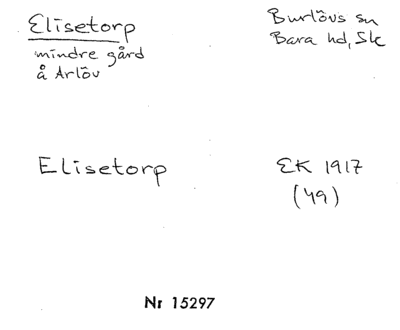 Elisetorp
mindre gård
å Arlöv
Burlövs sn
Bara hd, Sk
Elisetorp
EK 1917
(49)
Nr 15297